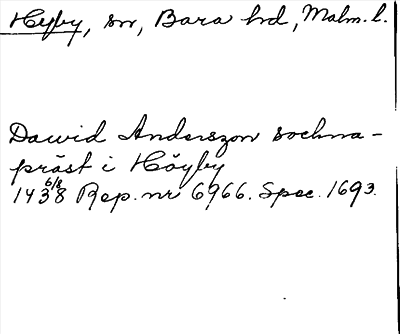 Hyby, sn, Bara hd, Malm. l.
Dawid Anderszon sochna-
präst i Höyby
1438 6/8 Rep. nr 6966. Spec. 1693.